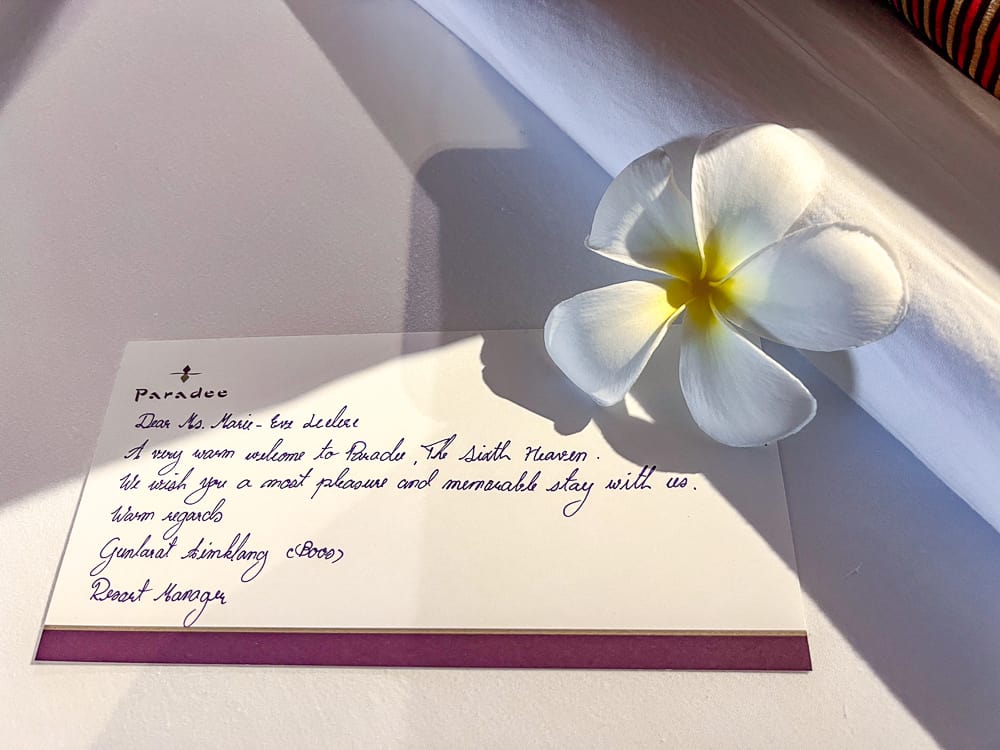 Paradee
Dear Ms. Marie-Eve Leclerc
A very warm welcome to Paradee, The Sixth Heaven.
We wish you a most pleasure and memorable stay with us.
Warm regards
Gunlarat (Boos)
Resort Manager